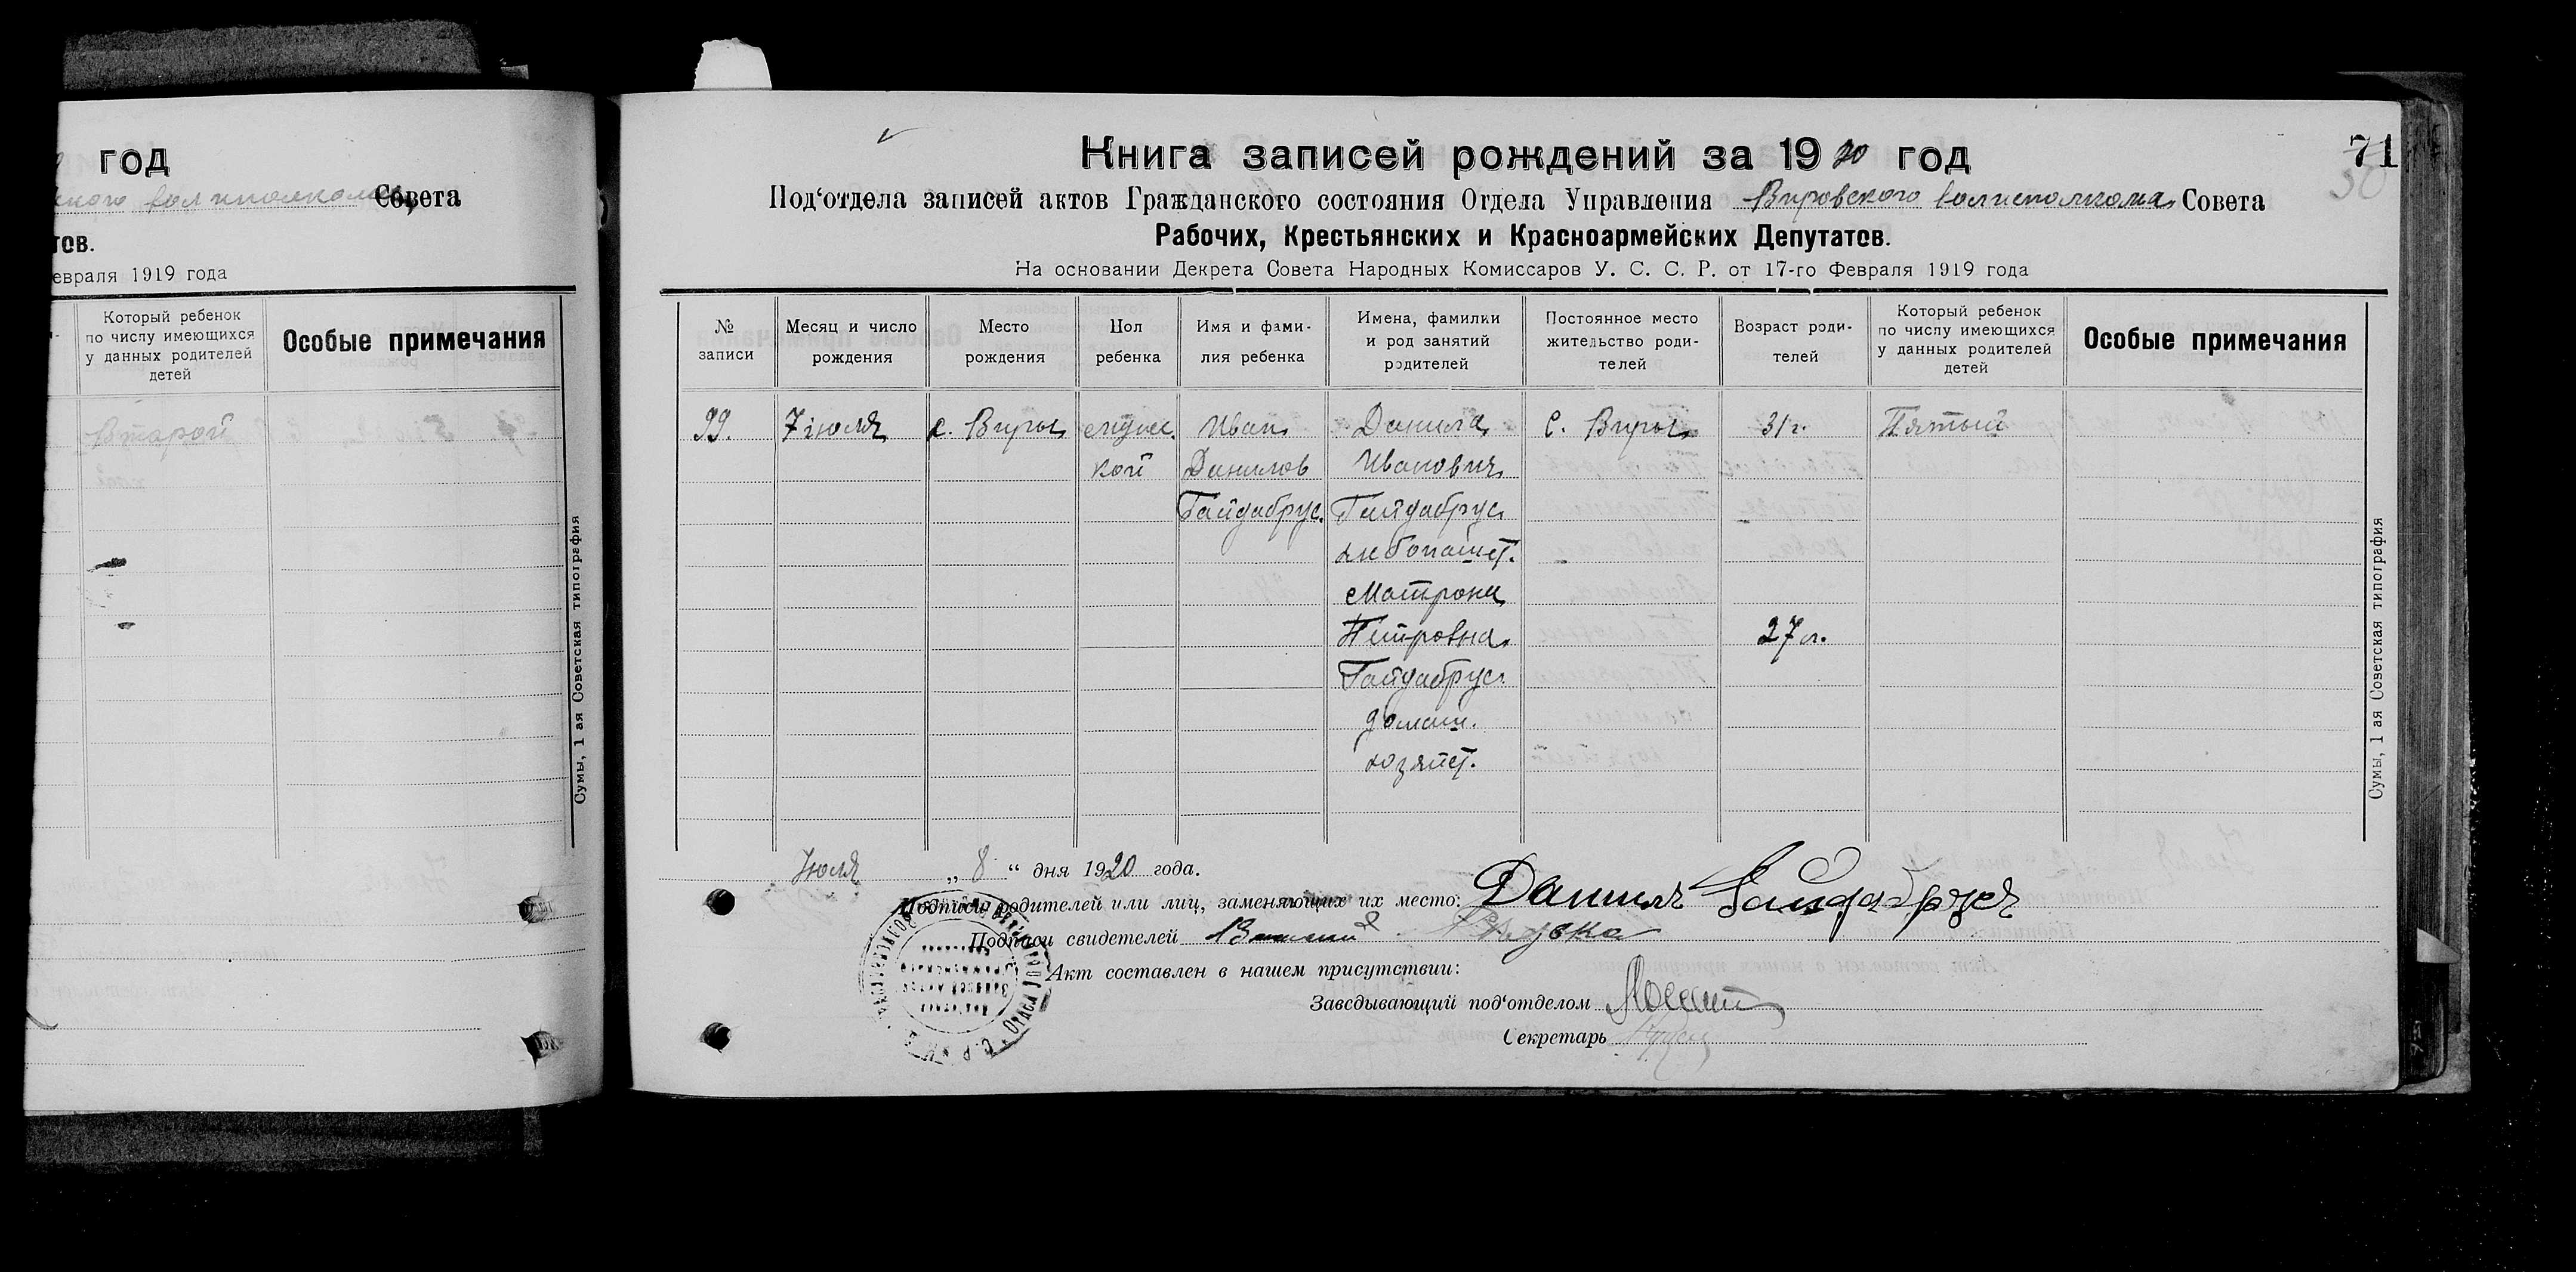 год
Совета
тов.
евраля 1919 года
Который ребенок
по числу имеющихся
у данных родителей
детей
Особые примечания
Второй
Сумы, 1 ая Советская типография
71
30
Книга записей рождений за 1920 год
Под‘отдела записей актов Гражданского состояния Отдела Управления Вировского волисполкома Совета
Рабочих, Крестьянских и Красноармейских Депутатов.
На основании Декрета Совета Народных Комиссаров У. С. С. Р. от 17-го Февраля 1919 года
№
записи
Месяц и число
рождения
Место
рождения
Пол
ребенка
Имя и фами-
лия ребенка
Имена, фамилии
и род занятий
родителей
Постоянное место
жительство роди-
телей
Возраст роди-
телей
Который ребенок
по числу имеющихся
у данных родителей
детей
Особые примечания
99.
7 июля
с. Виры
мужс.
кой
Иван
Данилов
Гайдабрус.
Данила
Иванович
Гайдабрус
хлебопашст.
Матрона
Петровна
Гайдабрус
домаш.
хозяйст.
с. Виры
31 г.
27 л.
Пятый
Июля „ 8 “ дня 1920 года.
Подписи родителей или лиц, заменяющих их место: Данилъ Гайдабрусъ
Подписи свидетелей
Акт составлен в нашем присутствии:
Заведывающий под‘отделом
Секретарь
Сумы, 1 ая Советская типография